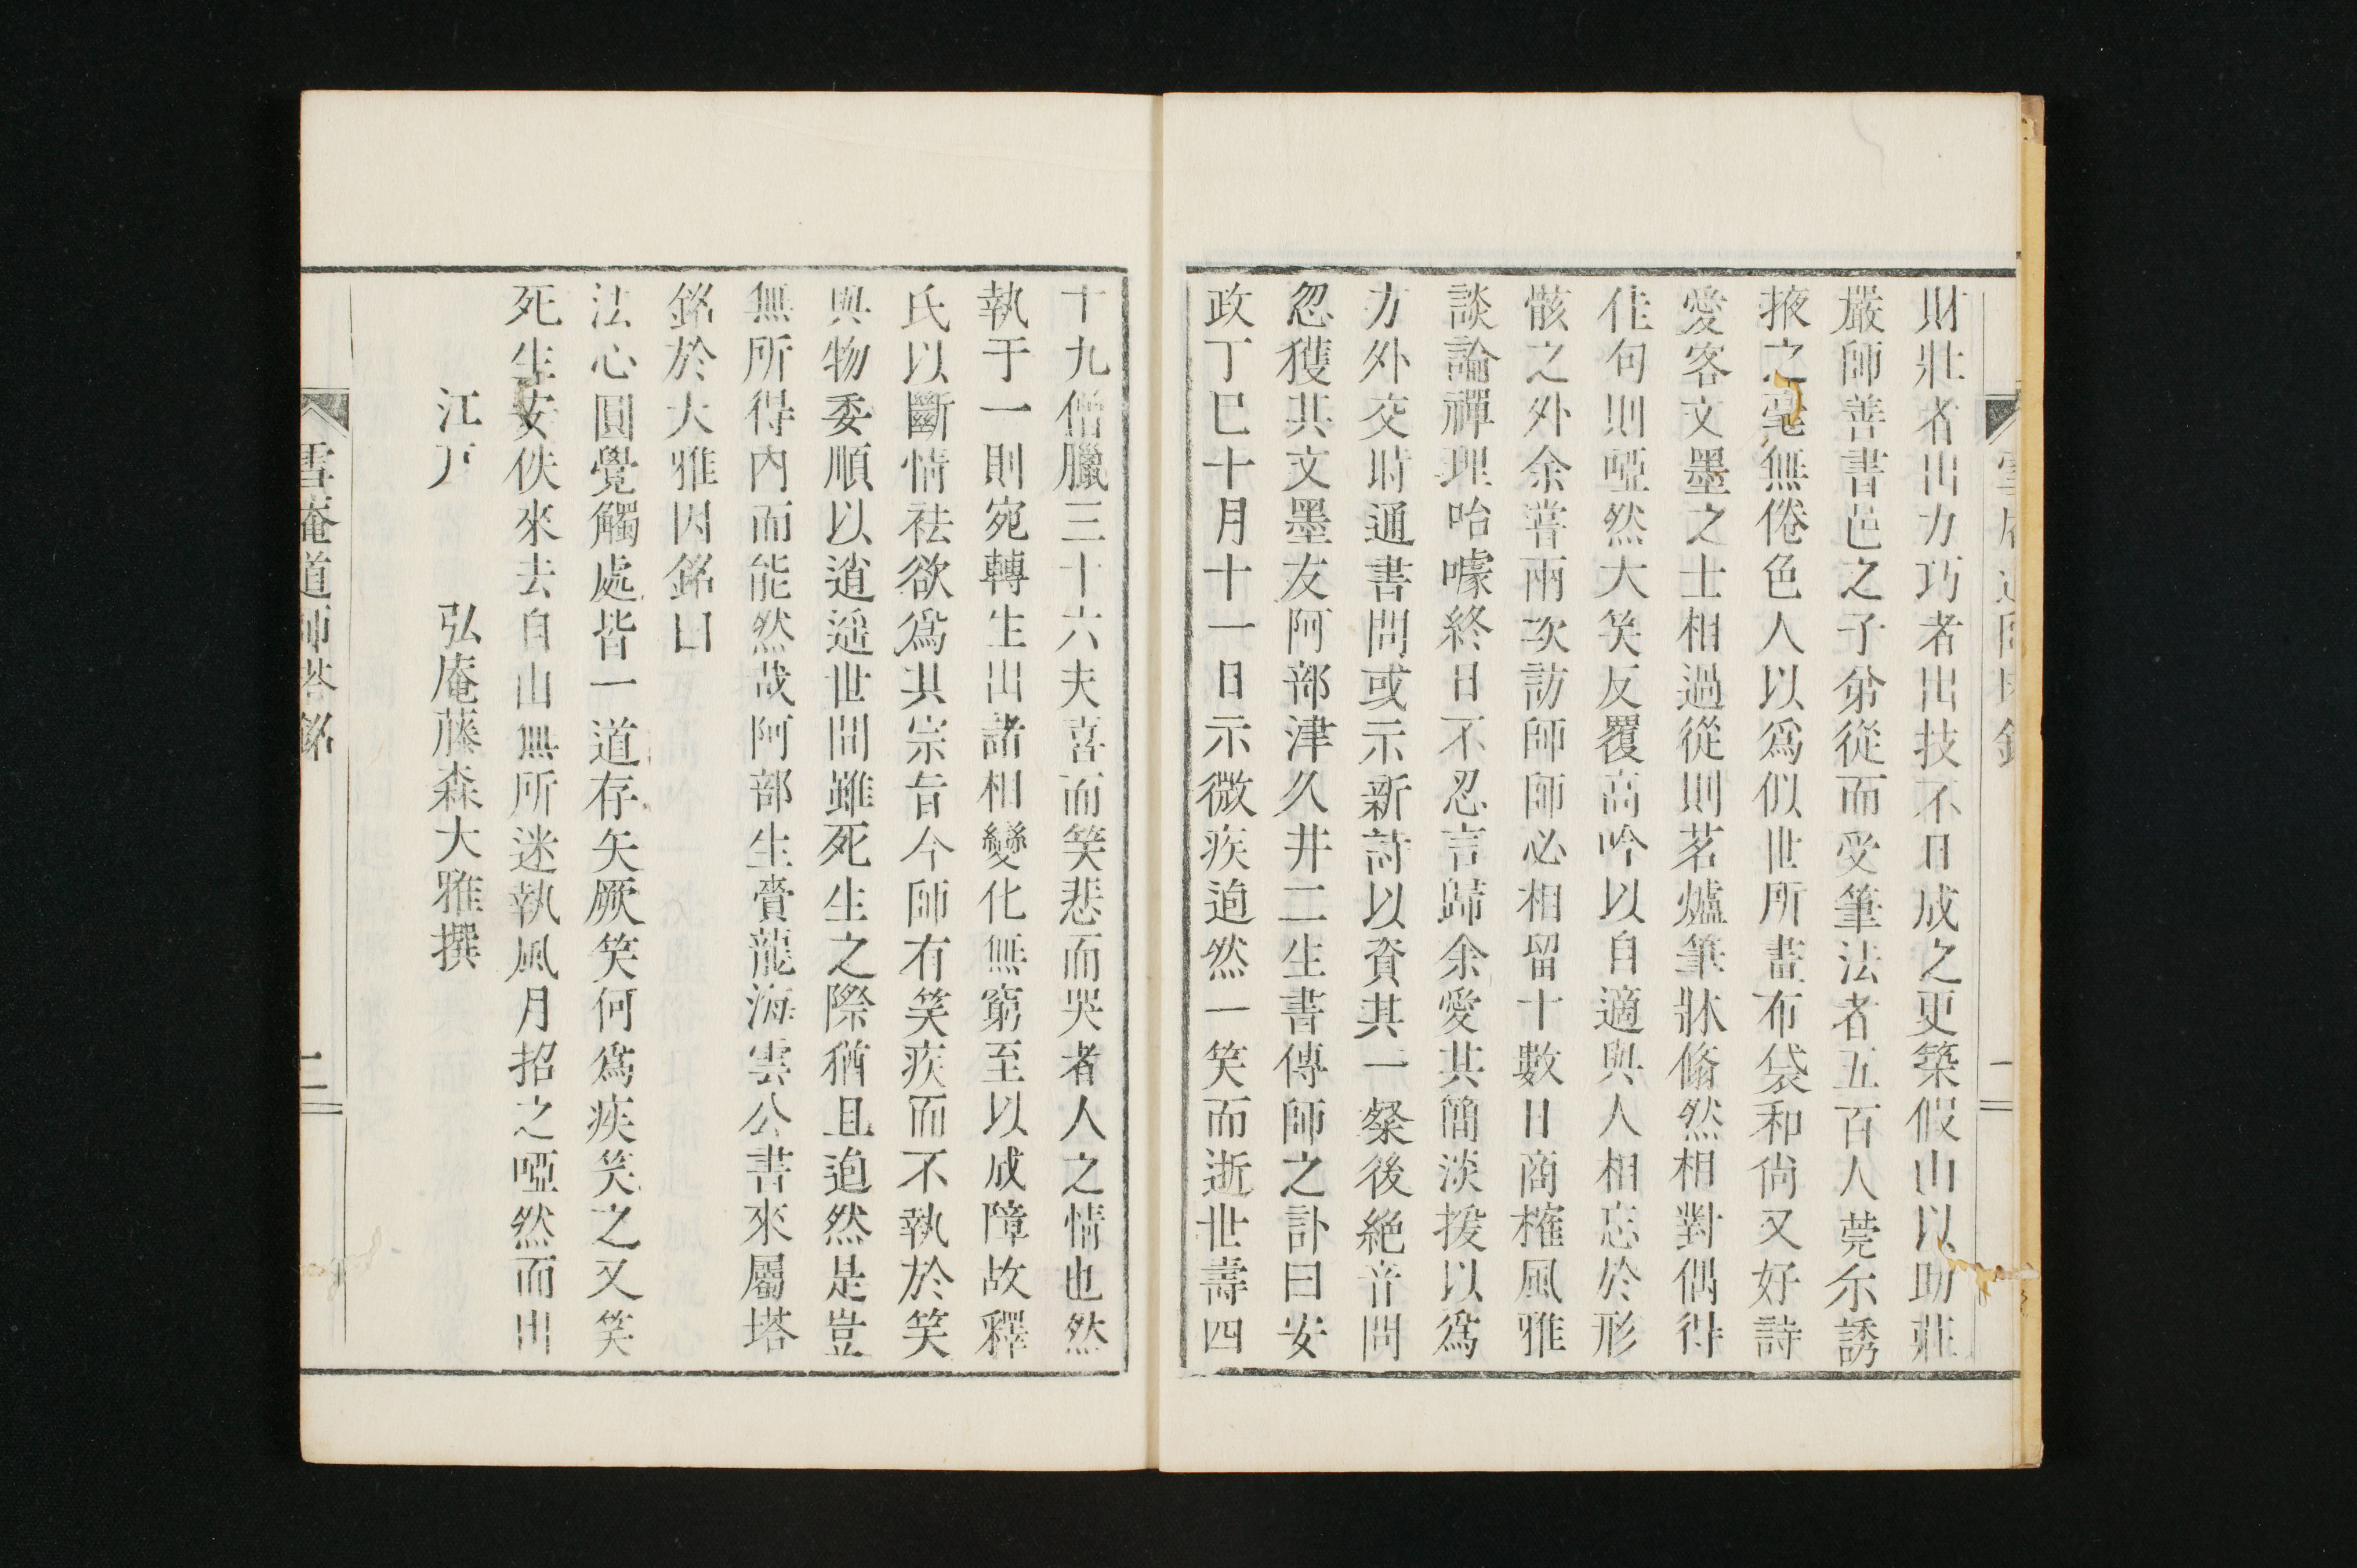 財壯者出力巧者出技不日成之更築假山以助莊
嚴師善書邑之子弟從而受筆法者五百人莞尓誘
掖之毫無倦色人以爲似世所畫布袋和尙又好詩
愛客文墨之士相過從則茗爐筆牀翛然相對偶得
佳句則啞然大笑反覆高吟以自適與人相忘於形
骸之外余嘗兩次訪師師必相留十數日商榷風雅
談論禪理咍噱終日不忍言歸余愛其簡淡援以爲
方外交時通書問或示新詩以資其一粲後絕音問
忽獲其文墨友阿部津久井二生書傳師之訃曰安
政丁巳十月十一日示微疾逌然一笑而逝世壽四
十九僧臘三十六夫喜而笑悲而哭者人之情也然
執于一則宛轉生出諸相變化無窮至以成障故釋
氏以斷情祛欲爲其宗旨今師有笑疾而不執於笑
與物委順以逍遥世間雖死生之際猶且逌然是豈
無所得內而能然哉阿部生賫龍海雲公書來屬塔
銘於大雅因銘曰
法心圓覺觸處皆一道存矣厥笑何爲疾笑之又笑
死生安佚來去自由無所迷執風月招之啞然而出
江戸　弘庵藤森大雅撰
雪庵道師塔銘
二